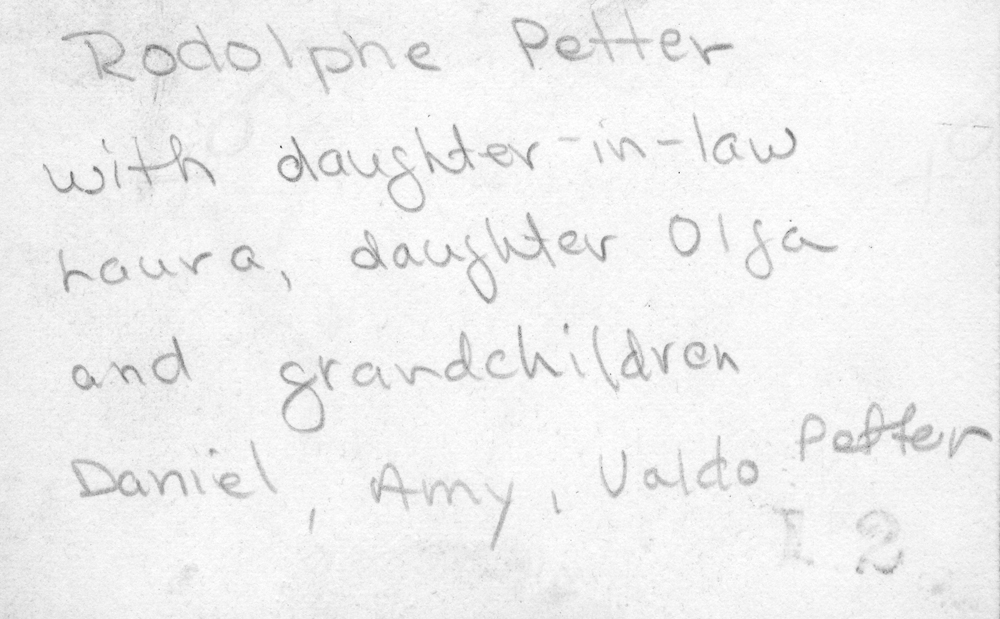 Rodolphe Petter
with daughter-in-law
Laura, daughter Olga
and grandchildren
Daniel, Amy, Valdo Petter
I 2